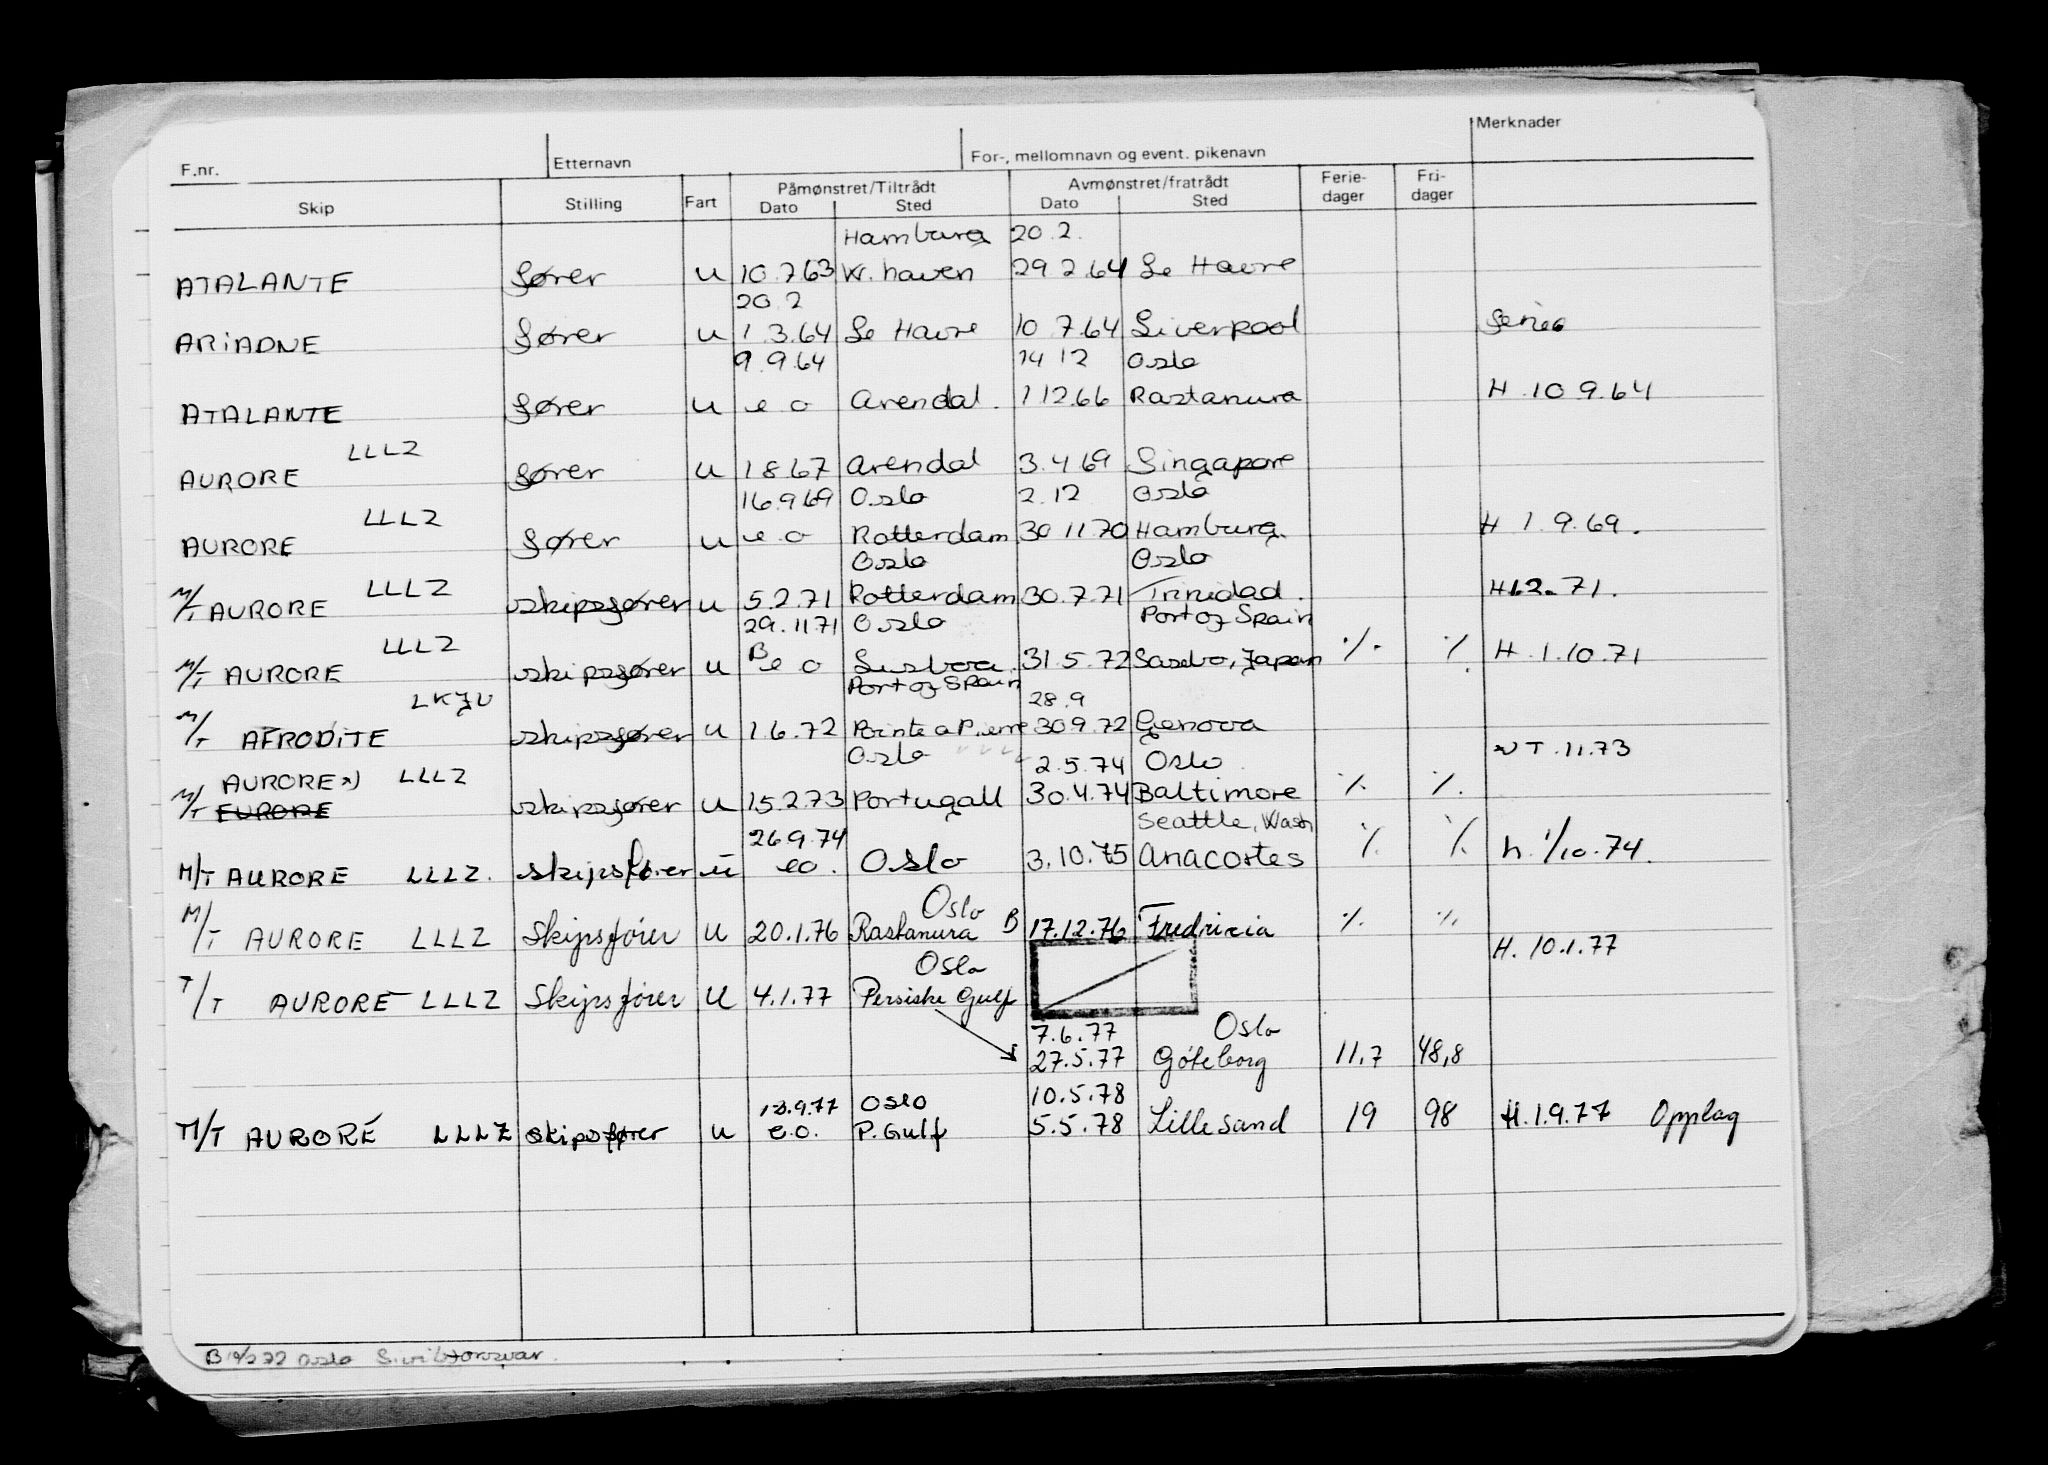 F.nr. Etternavn For-, mellomnavn og event. pikenavn Merknader
Skip Stilling Fart Påmønstret/Tiltrådt Dato Sted Avmønstret/fratrådt Dato Sted Ferie-dager Fri-dager
Hamburg 20.2.
ATALANTE fører u 10.7.63 W.haven 29.2.64 Le Havre
20.2
ARIADNE fører u 1.3.64 Le Havre 10.7.64 Liverpool
9.9.64 14 12 Oslo
ATALANTE fører u e o Arendal. 1 12.66 Rastanura H.10 9.64
AURORE LLLZ fører u 1 8.67 Arendal 3.4 69 Singapore
16.9 69 Oslo 2.12 Oslo
AURORE LLLZ fører u e o Rotterdam 30 11.70 Hamburg. H 1.9.69.
Oslo Oslo
M/T AURORE LLLZ skipsfører u 5.2.71 Rotterdam 30.7.71 Trinidad. H1.2.71.
29.11 71 Oslo Port of Spain
M/T AURORE LLLZ skipsfører u B e o Lisboa. 31.5.72 Sasebo, Japan ./. ./. H.1.10.71
Port of Spain 28.9
M/T AFRODITE LKJU skipsfører u 1.6.72 Pointe a Pierre 30.9.72 Genova
Oslo 2.5.74 Oslo. T.11.73
AURORE x) LLLZ
M/T EURORE skipsfører u 15.2.73 Portugall 30.4.74 Baltimore ./. ./.
26.9.74 Seattle, Wash
M/T AURORE LLLZ. skipsfører u eo. Oslo 3.10.75 Anacortes ./. ./. h. 1/10.74.
Oslo
M/T AURORE LLLZ Skipsfører u 20.1.76 Rastanura B 17.12.76 Fredricia ./. ./.
Oslo H. 10.1.77
T/T AURORE LLLZ Skipsfører u 4.1.77 Persiske Gulf
7.6.77 Oslo
27.5.77 Göteborg 11,7 48,8
13.9.77 Oslo 10.5.78
M/T AURORE LLLZ skipsfører u e.o. P.Gulf 5.5.78 Lillesand 19 98 H.1.9.77 Opplag
Oslo Sivilforsvar.